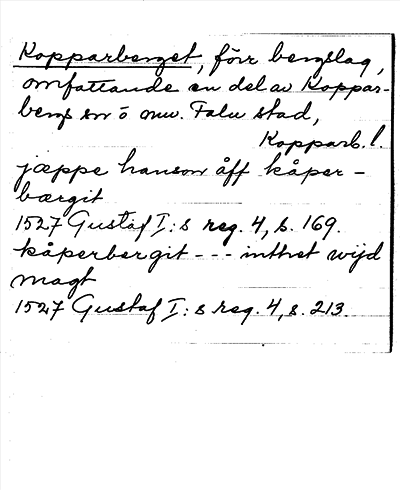 Kopparberget, förr bergslag,
omfattande en del av Koppar-
bergs sn o nuv. Falu stad,
Kopparb. l.
jæppe hanson åff kåper-
bærgit
1527 Gustaf I:s reg. 4, s. 169.
kåperbergit - - - inthet wijd
magt
1527 Gustaf I:s reg. 4, s. 213.